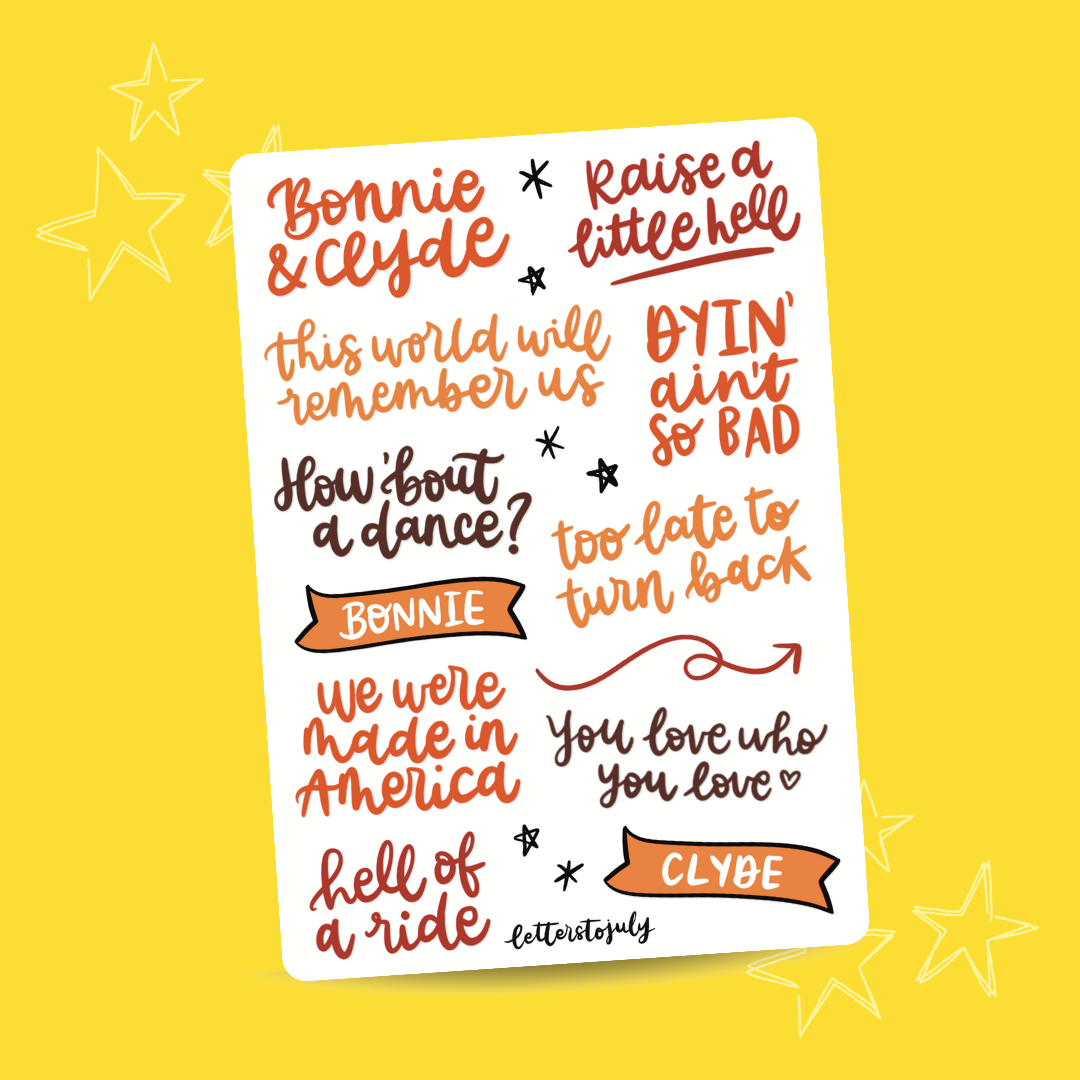 Bonnie
& Clyde
Raise a
little hell
this world will
remember us
DYIN'
ain't
So BAD
How 'bout
a dance?
too late to
turn back
BONNIE
we were
made in
America
You love who
you love
hell of
a ride
CLYDE
letterstojuly